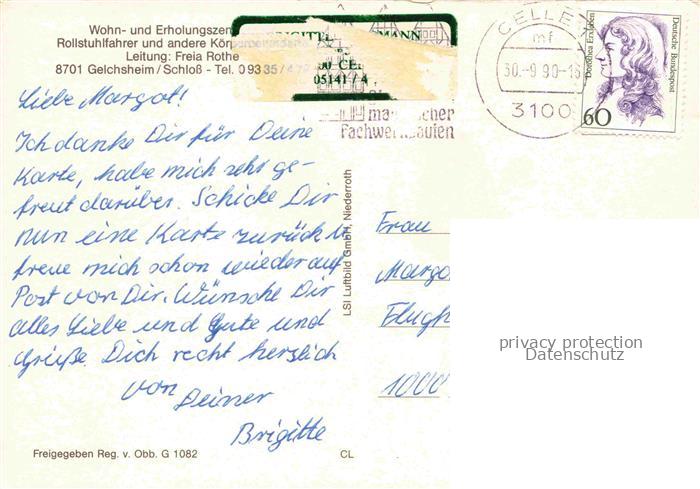 Wohn- und Erholungszen
Rollstuhlfahrer und andere
Leitung: Freia Rothe
8701 Gelchsheim/Schloß - Tel. 0 93 35 / 4
MANN
05141/4
CELLE
mf
30.-9.90-18
3100
Fachwerkbauten
Dorothea Erxleben
Deutsche Bundespost
60
Liebe Margot!
Ich danke Dir für Deine
Karte, habe mich sehr ge-
freut darüber. Schicke Dir
nun eine Karte zurück u.
freue mich schon wieder auf
Post von Dir. Wünsche Dir
alles Liebe und Gute und
Grüße Dich recht herzlich
von
Deiner
Brigitte
LSI Luftbild GmbH, Niederroth
Frau
Margo
Flugh
1000
privacy protection
Datenschutz
Freigegeben Reg. v. Obb. G 1082
CL